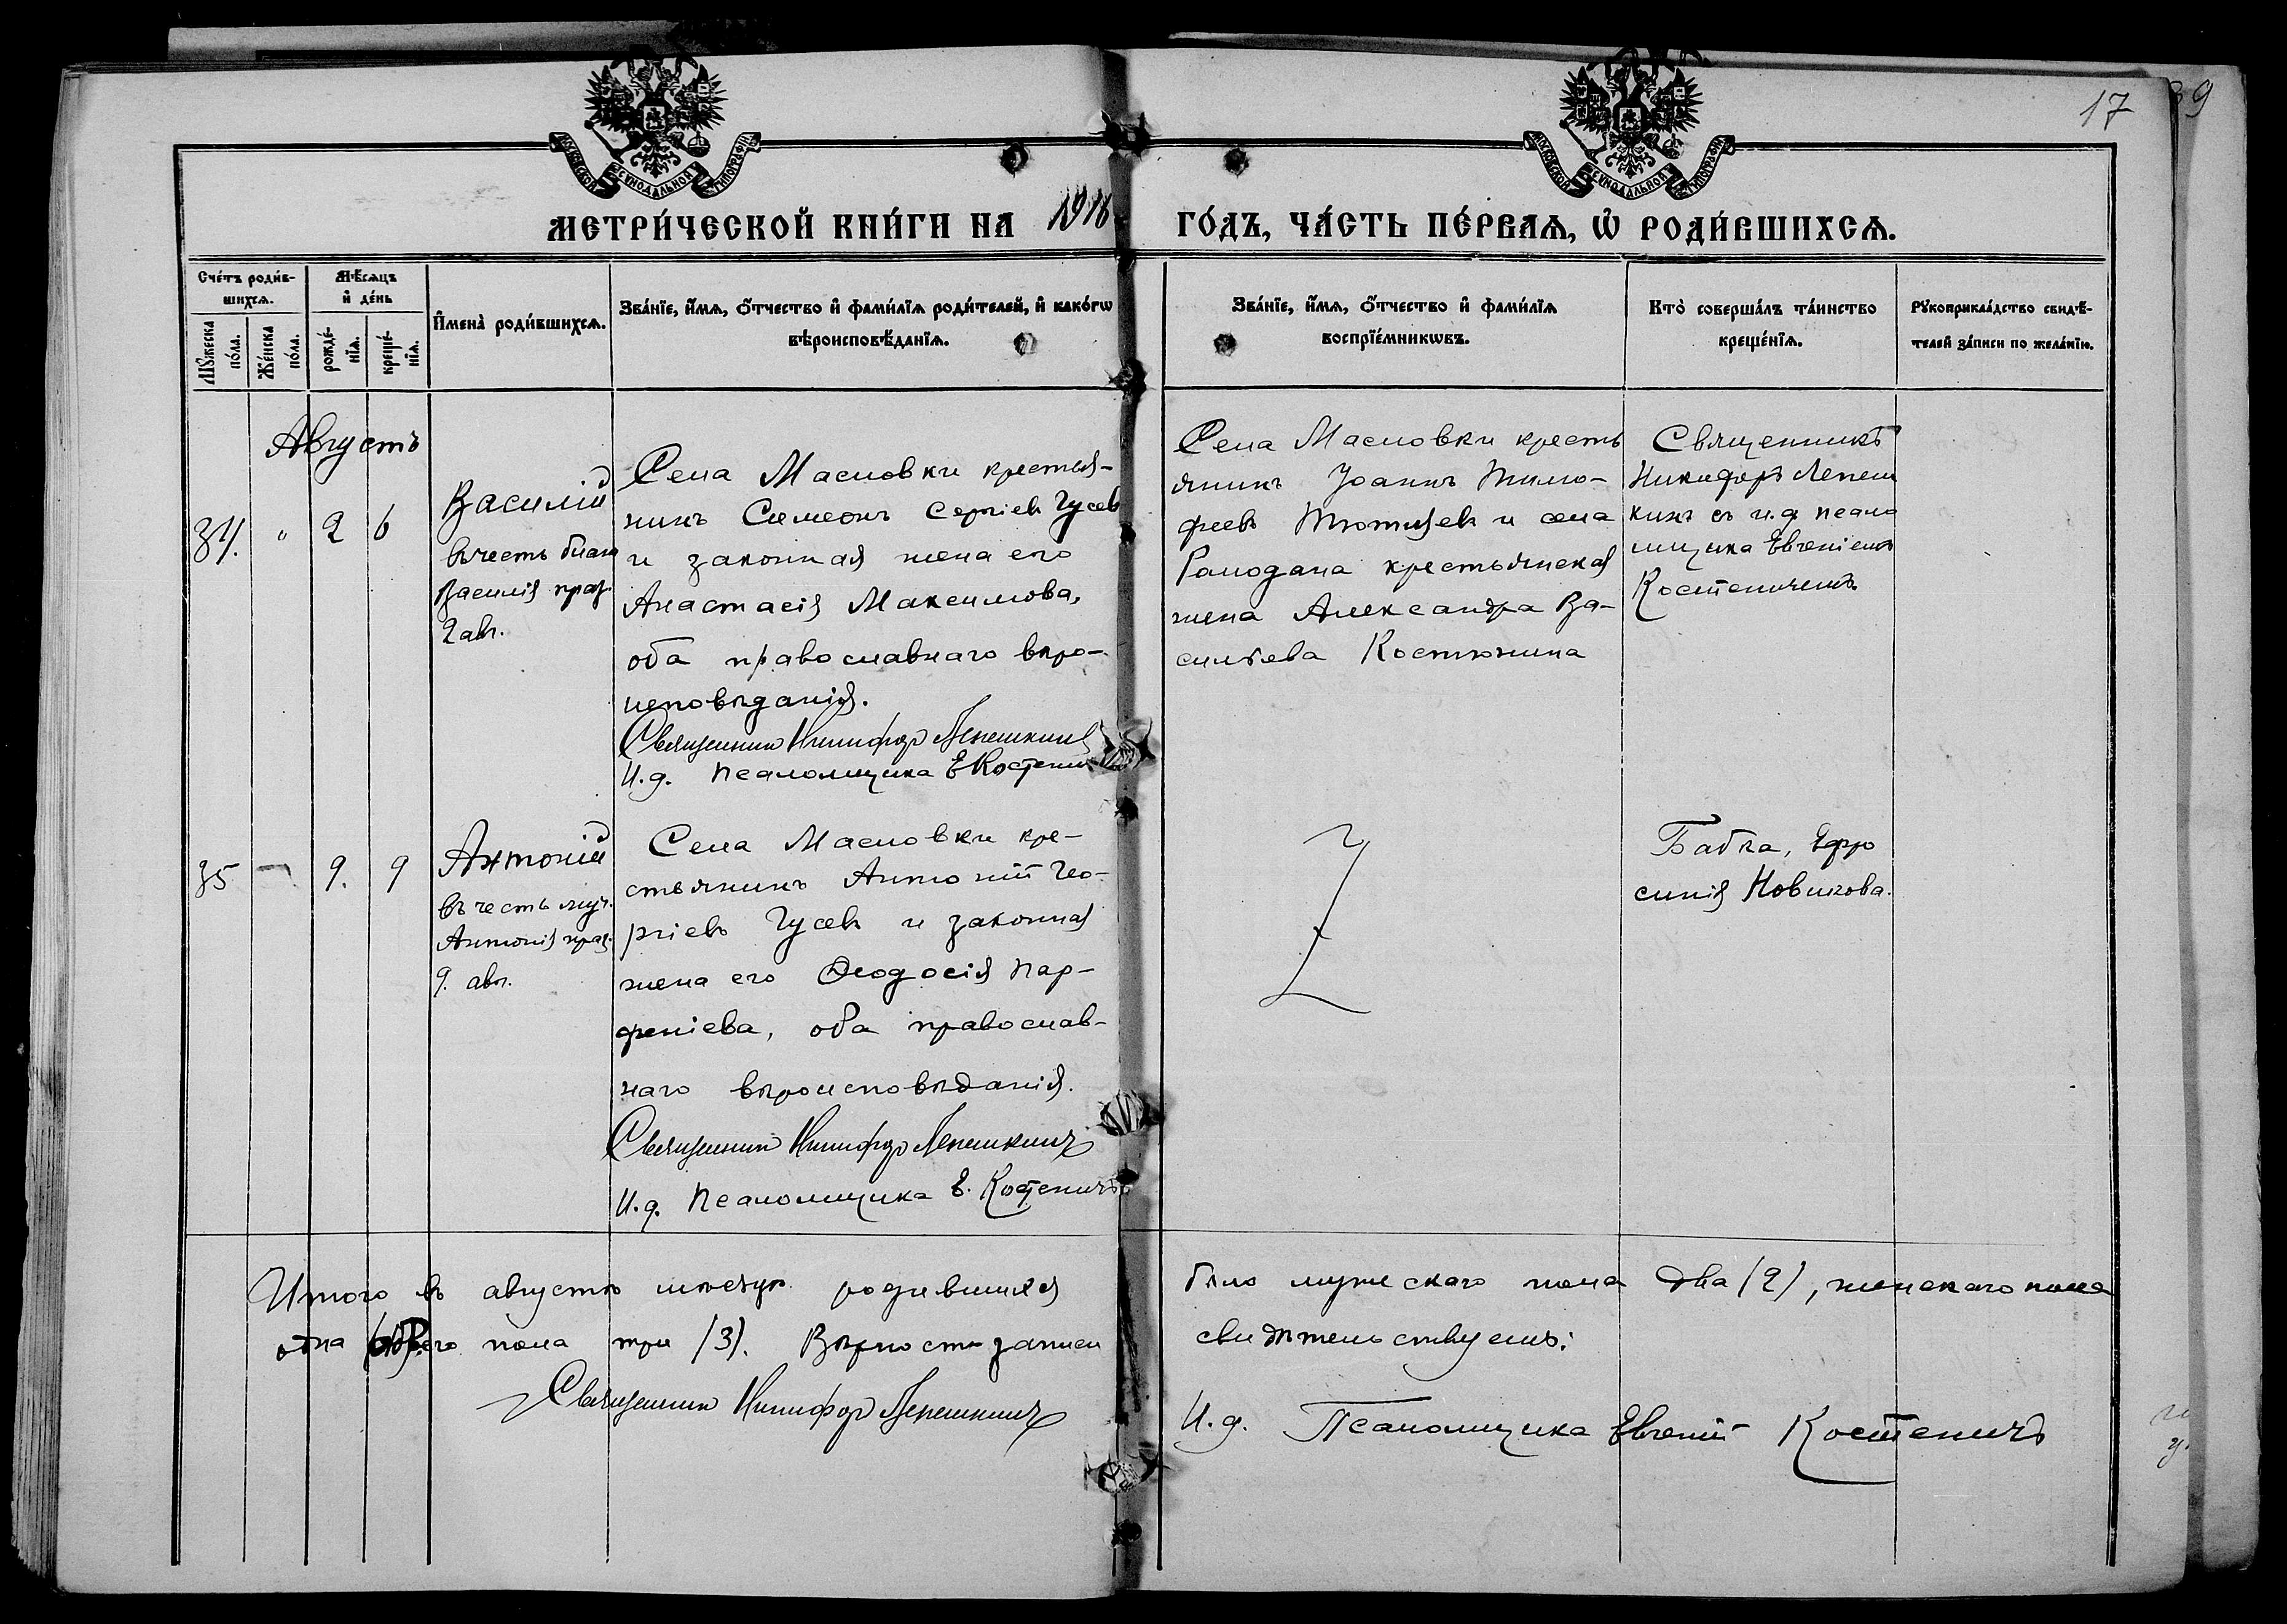 17
39
МОСКОВСКОЙ СѴНОДАЛЬНОЙ ТИПОГРАФІИ
МОСКОВСКОЙ СѴНОДАЛЬНОЙ ТИПОГРАФІИ
МЕТРИ́ЧЕСКОЙ КНИ́ГИ НА 1916 ГО́ДЪ, ЧА́СТЬ ПЕ́РВАѦ, Ѡ҆ РОДИ́ВШИХСѦ.
Сче́тъ роди́в-
шихсѧ.
Мꙋ́жеска
по́ла.
Же́нска
по́ла.
Мѣ́сѧцъ
и҆ де́нь
рожде́-
нїѧ.
креще́-
нїѧ.
И҆мена̀ роди́вшихсѧ.
Зва́нїе, и҆́мѧ, ѻ҆́тчество и҆ фами́лїѧ роди́телей, и҆ како́гѡ
вѣроисповѣ́данїѧ.
Зва́нїе, и҆́мѧ, ѻ҆́тчество и҆ фами́лїѧ
воспрїе́мникѡвъ.
Кто̀ соверша́лъ та́инство
креще́нїѧ.
Рꙋкоприкла́дство свидѣ́-
телей за́писи по жела́нїю.
Августъ
34. " 2 6
Василій
въ честь блаж
Василія праз.
2 авг.
Села Масловки крестья-
нинъ Симеонъ Сергіевъ Гусевъ
и законная жена его
Анастасія Максимова,
оба православнаго вѣро-
исповѣданія.
Священникъ Никифоръ Лепешкинъ
И.д. псаломщика Е Костенич
Села Масловки кресть
янинъ Іоаннъ Тимо-
феевъ Тютюревъ и села
Рамодана крестьянская
жена Александра Ва-
сильева Костюнина
Священникъ
Никифоръ Лепеш
кинъ съ и.д. псало
мщика Евгеніемъ
Костеничемъ
35 — 9. 9
Антоній
въ честь муч.
Антонія праз.
9. авг.
Села Масловки кре-
стьянинъ Антоній Гео-
ргіевъ Гусевъ и законная
жена его Ѳеодосія Пар-
феніева, оба православ-
наго вѣроисповѣданія.
Священникъ Никифоръ Лепешкинъ
И.д. Псаломщика Е. Костеничъ
Бабка, Ефро
синія Новикова.
Итого въ августѣ мѣсяцѣ родившихся было мужескаго пола два (2), женскаго пола
одна пола три (3). Вѣрность записи свидѣтельствуемъ:
Священникъ Никифоръ Лепешкинъ
И.д. Псаломщика Евгеній Костеничъ